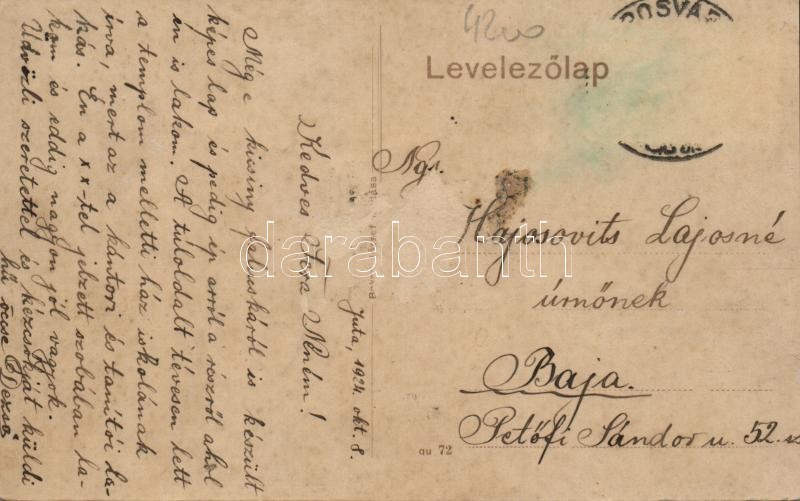 POSVÁR
4200
Levelezőlap
Juta, 1924. okt. 8.
Kedves Néném!
Még e kicsiny faluskáról is készült
képes lap és pedig ép arról a részről ahol
én is lakom. A túloldalt tévesen lett
a templom melletti ház iskolának
írva, mert az a kántori és tanítói la-
kás. Én a xx-tel jelzett szobában la-
kom és eddig nagyon jól vagyok.
Üdvözli szeretettel és kézcsókját küldi
hű öccse Dezső.
Ngs.
Hajosovits Lajosné
úrnőnek
Baja.
Petőfi Sándor u. 52. sz
qu 72
darabanth